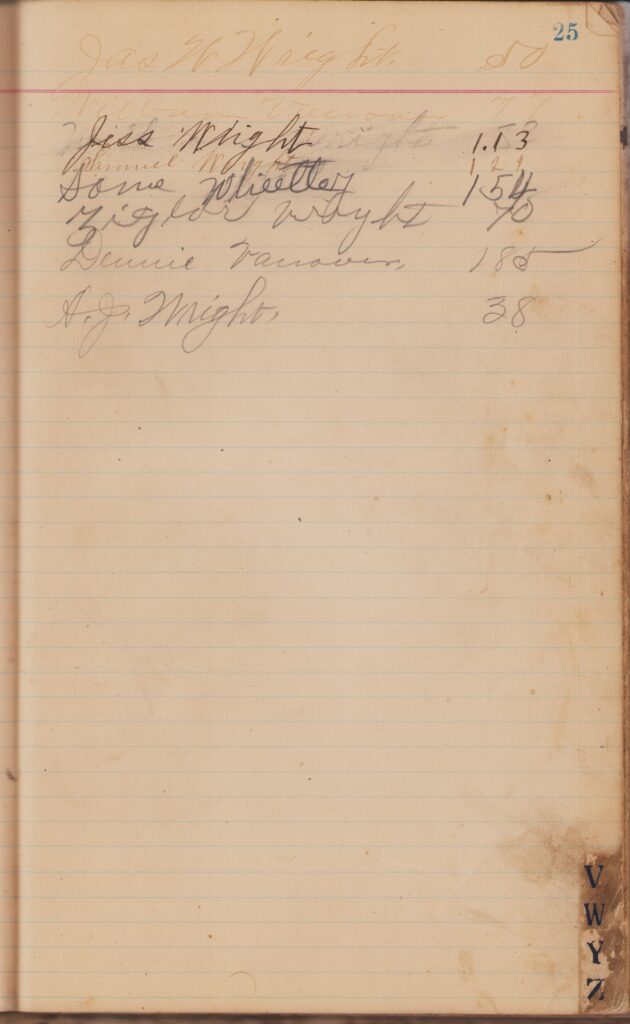 25
Jas W Wright. 50
Vanover 77
Jess Wright 1.13
Wright 121
Some Wheetley 154
Ziglor Wryht 70
Dennie Vanover, 185
A. J. Wright. 38
V
W
Y
Z